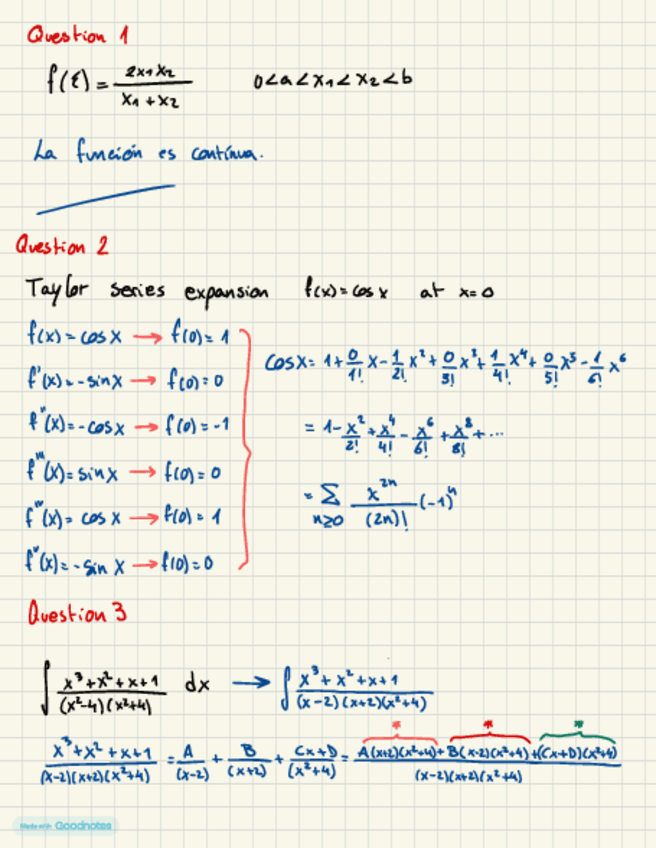 Question 1
f(ξ) = 2x₁x₂ / (x₁ + x₂)   0<a<x₁<x₂<b
La función es contínua.
Question 2
Taylor series expansion f(x) = cos x at x=0
f(x) = cos x → f(0) = 1
f'(x) = -sin x → f(0) = 0
f''(x) = -cos x → f(0) = -1
f'''(x) = sin x → f(0) = 0
f⁗(x) = cos x → f(0) = 1
fᵛ(x) = -sin x → f(0) = 0
cos x = 1 + 0/1! x - 1/2! x² + 0/3! x³ + 1/4! x⁴ + 0/5! x⁵ - 1/6! x⁶
= 1 - x²/2! + x⁴/4! - x⁶/6! + x⁸/8! + ...
= Σ n≥0 x²ⁿ/(2n)! (-1)ⁿ
Question 3
∫ (x³+x²+x+1)/((x²-4)(x²+4)) dx → ∫ (x³+x²+x+1)/((x-2)(x+2)(x²+4))
* * *
(x³+x²+x+1)/((x-2)(x+2)(x²+4)) = A/(x-2) + B/(x+2) + (Cx+D)/(x²+4) = (A(x+2)(x²+4)+B(x-2)(x²+4)+(Cx+D)(x²-4))/((x-2)(x+2)(x²+4))
Made with Goodnotes